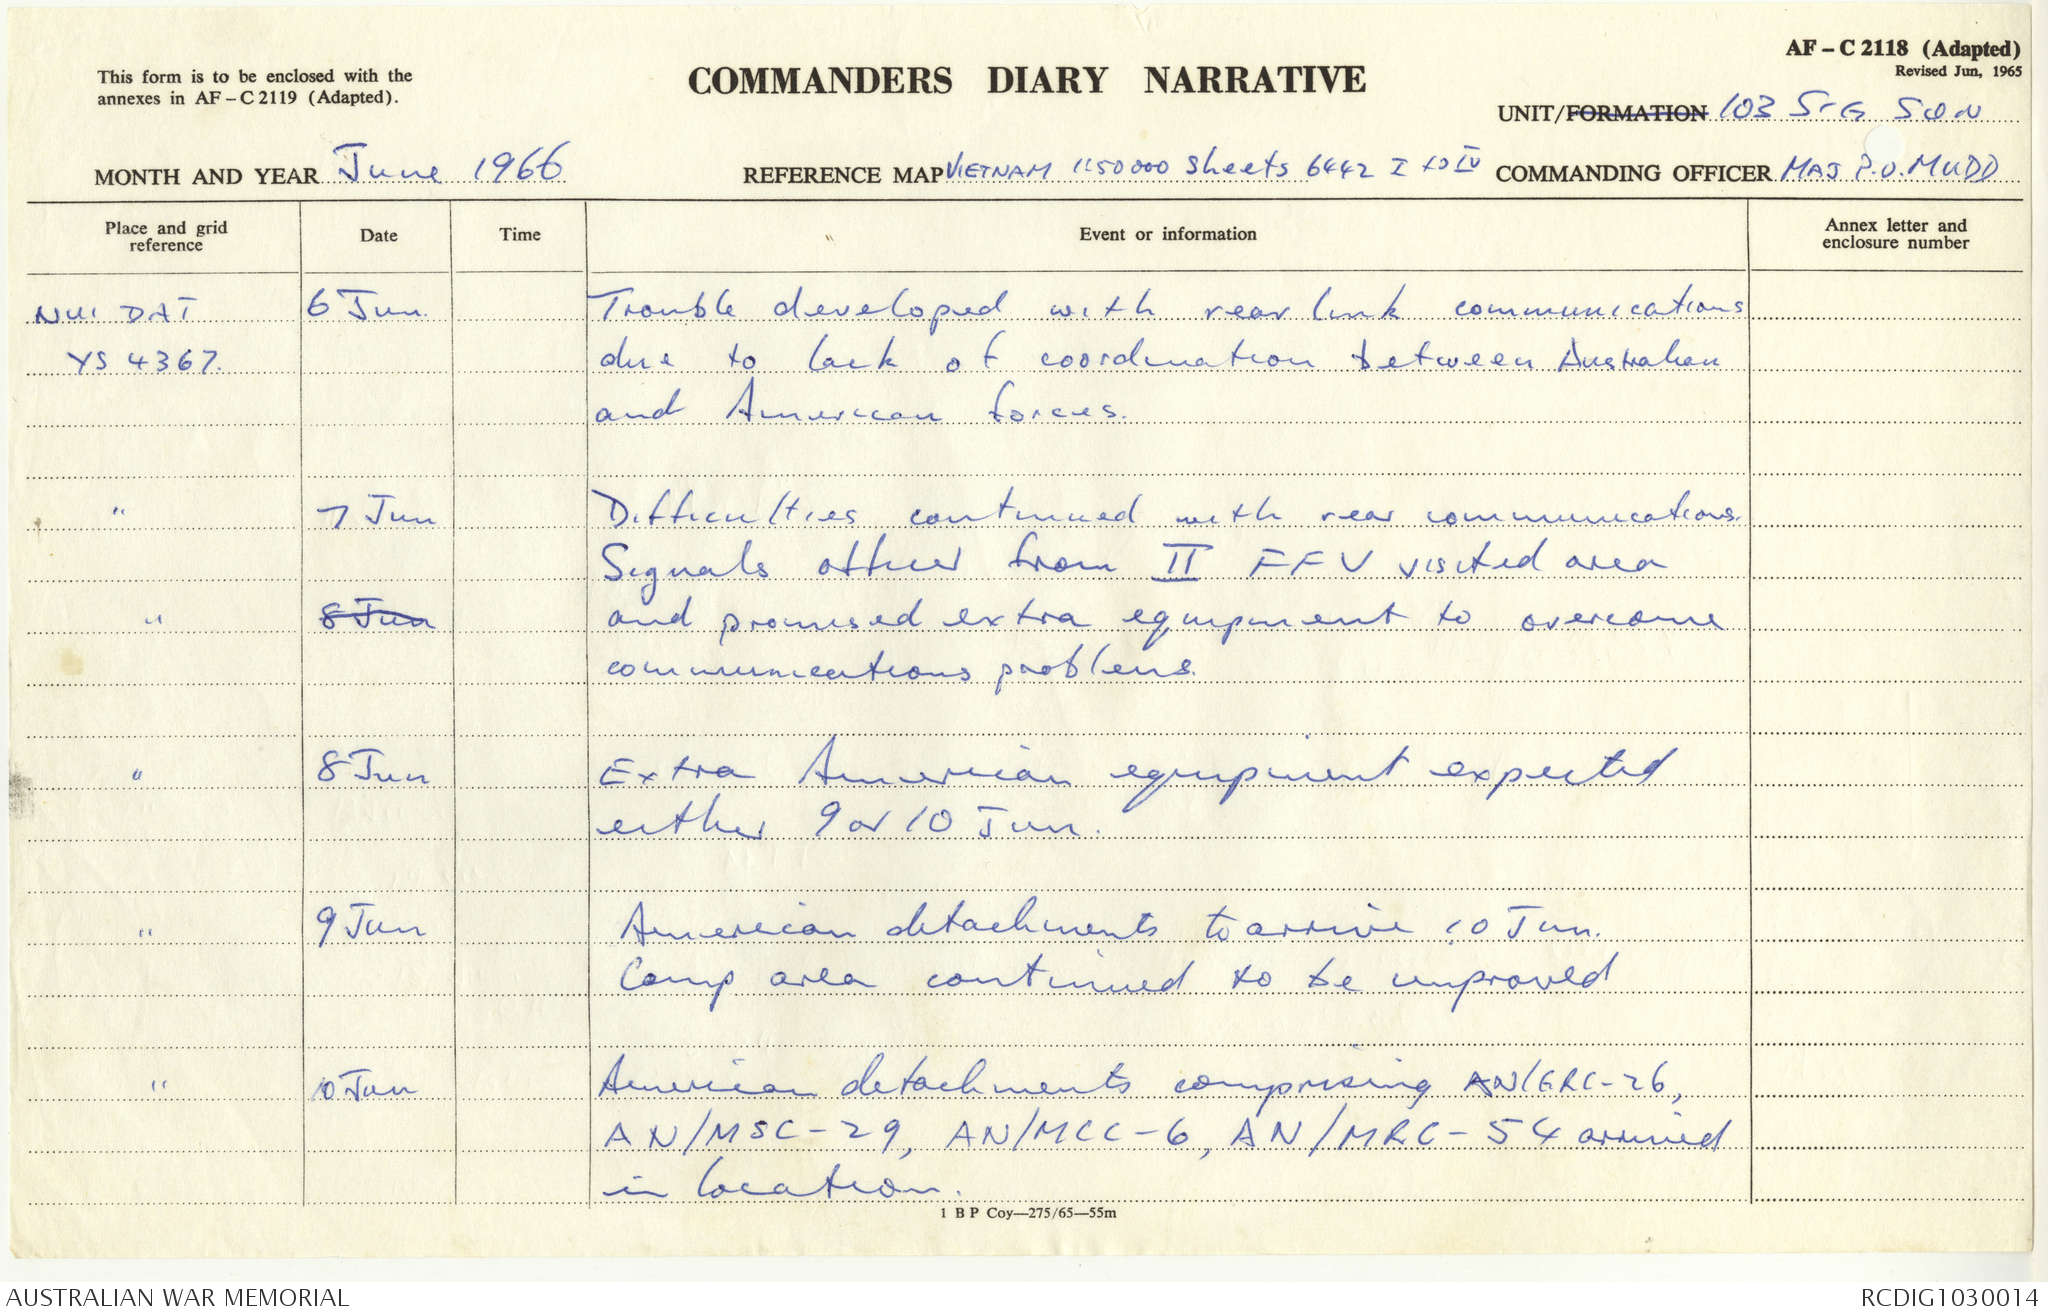 AF – C 2118 (Adapted)
Revised Jun, 1965
This form is to be enclosed with the
annexes in AF – C 2119 (Adapted).
COMMANDERS DIARY NARRATIVE
UNIT/FORMATION 103 SIG SQN
MONTH AND YEAR June 1966
REFERENCE MAP VIETNAM 1:50000 Sheets 6442 I to IV
COMMANDING OFFICER MAJ P.D. MUDD
Place and grid
reference
Date
Time
Event or information
Annex letter and
enclosure number
NUI DAT 6 Jun. Trouble developed with rear link communications
YS 4367. due to lack of coordination between Australian
and American forces.
" 7 Jun Difficulties continued with rear communications.
Signals officer from II FFV visited area
" 8 Jun and promised extra equipment to overcome
communications problems.
" 8 Jun Extra American equipment expected
either 9 or 10 Jun.
" 9 Jun American detachments to arrive 10 Jun.
Camp area continued to be improved
" 10 Jun American detachments comprising AN/GRC-26,
AN/MSC-29, AN/MCC-6, AN/MRC-54 arrived
in location.
1 B P Coy—275/65—55m
AUSTRALIAN WAR MEMORIAL
RCDIG1030014